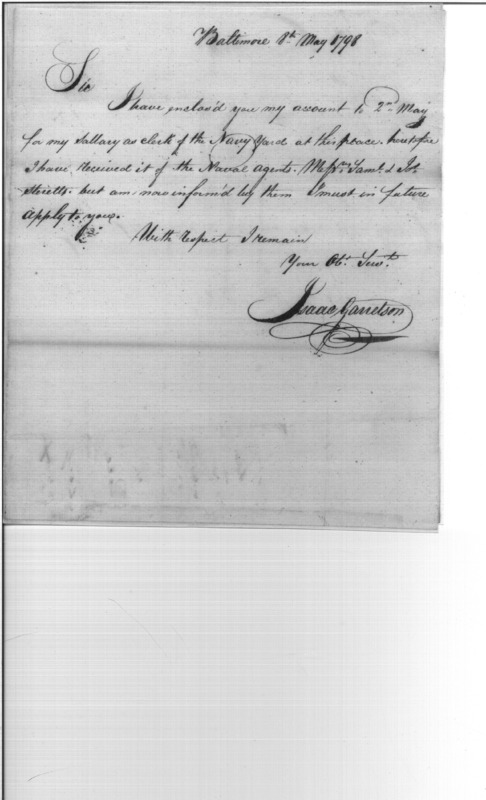 Baltimore 8th May 1798
Sir
I have enclos'd you my account to 2nd May
for my Sallary as clerk of the Navy Yard at this place. heretofore
I have Received it of the Naval agents. Messrs Saml & Jos.
Sterett. but am now inform'd by them I must in future
apply to you.
With respect I remain
Your Obt. Servt.
Isaac Garretson